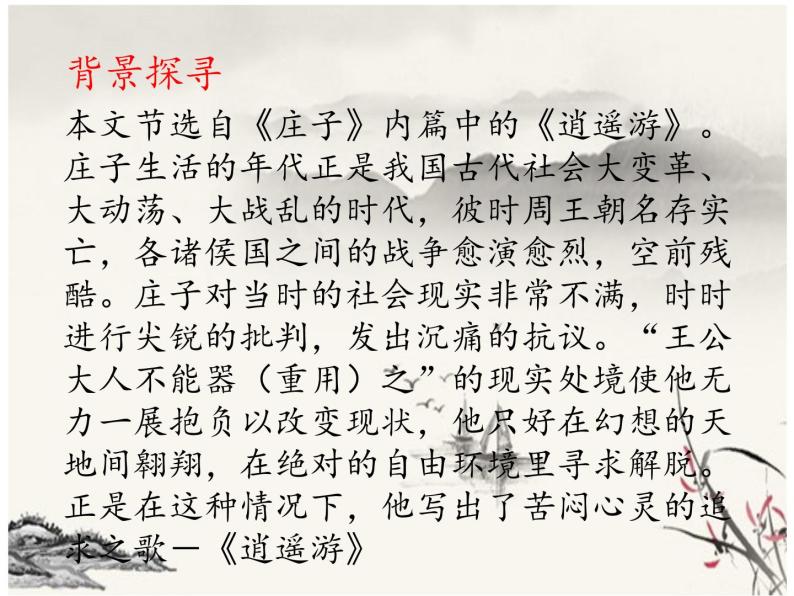 背景探寻
本文节选自《庄子》内篇中的《逍遥游》。
庄子生活的年代正是我国古代社会大变革、
大动荡、大战乱的时代，彼时周王朝名存实
亡，各诸侯国之间的战争愈演愈烈，空前残
酷。庄子对当时的社会现实非常不满，时时
进行尖锐的批判，发出沉痛的抗议。“王公
大人不能器（重用）之”的现实处境使他无
力一展抱负以改变现状，他只好在幻想的天
地间翱翔，在绝对的自由环境里寻求解脱。
正是在这种情况下，他写出了苦闷心灵的追
求之歌－《逍遥游》